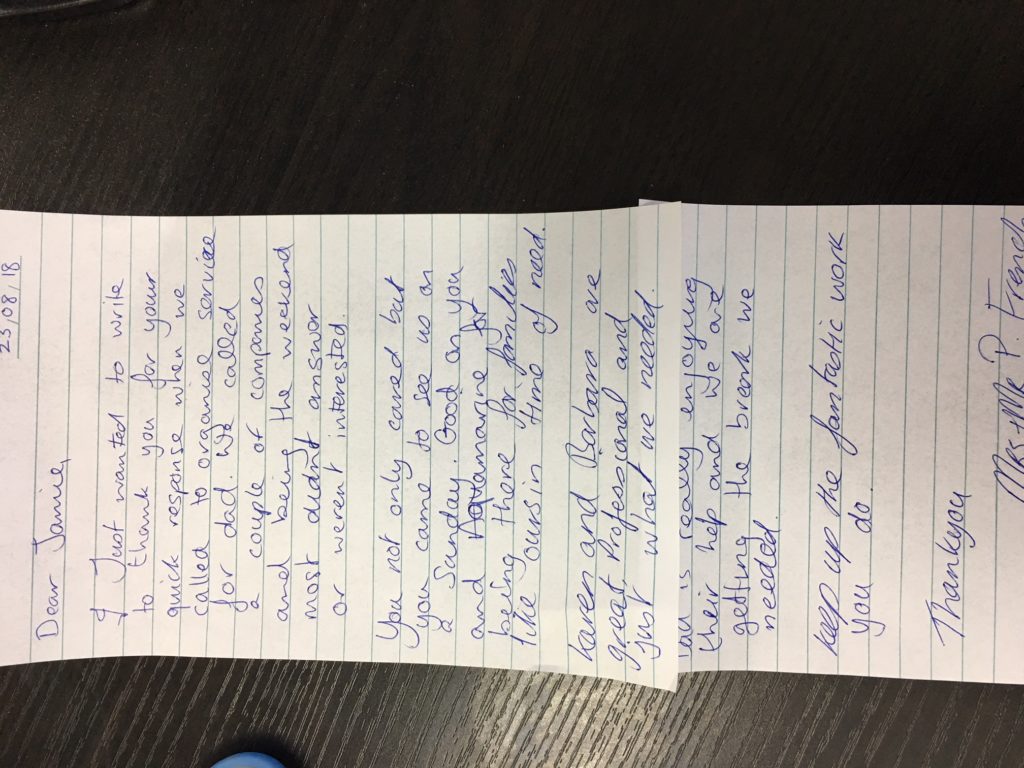 23/08/18
Dear Janice,
I Just wanted to write
to thank you for your
quick response when we
called to organise service
for dad. We called
a couple of companies
and being the weekend
most didn't answer
or weren't interested.
You not only cared but
you came to see us on
a Sunday. Good on you
and for
being there for families
like ours in time of need.
Karen and Barbara are
great. Professional and
just what we needed.
Dad is really enjoying
their help and we are
getting the break we
needed.
Keep up the fantastic work
you do.
Thankyou
Mrs + Mr P. French